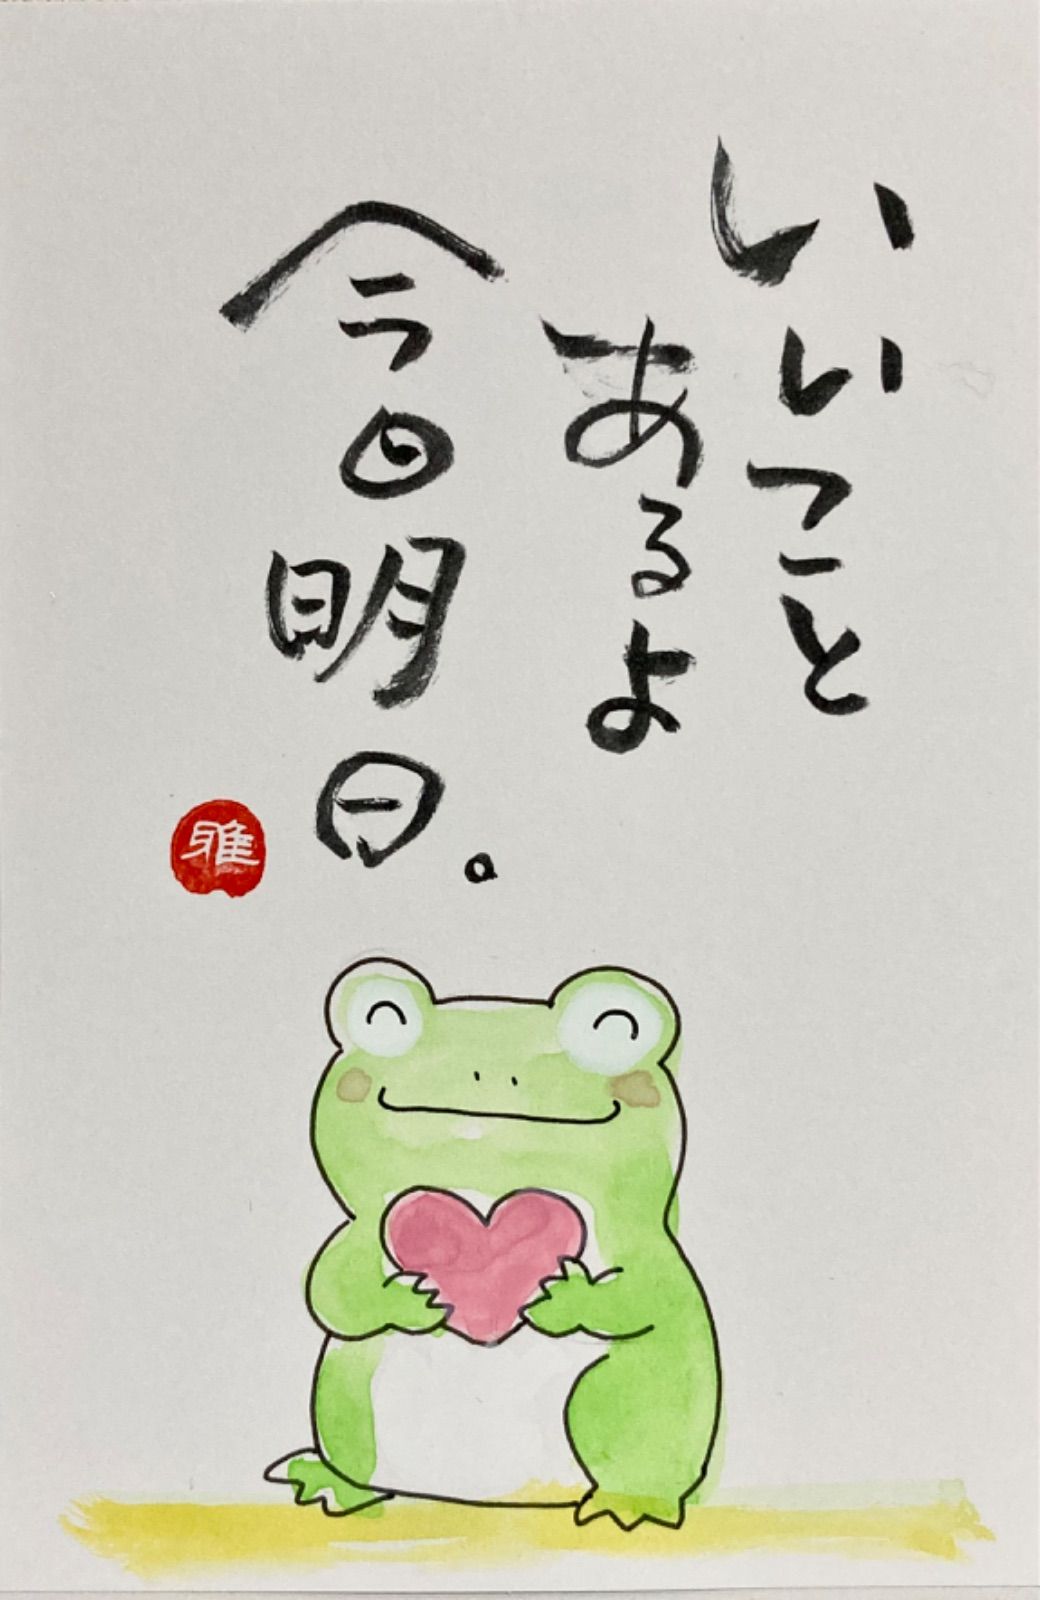 いいこと
あるよ
今日明日。
雅